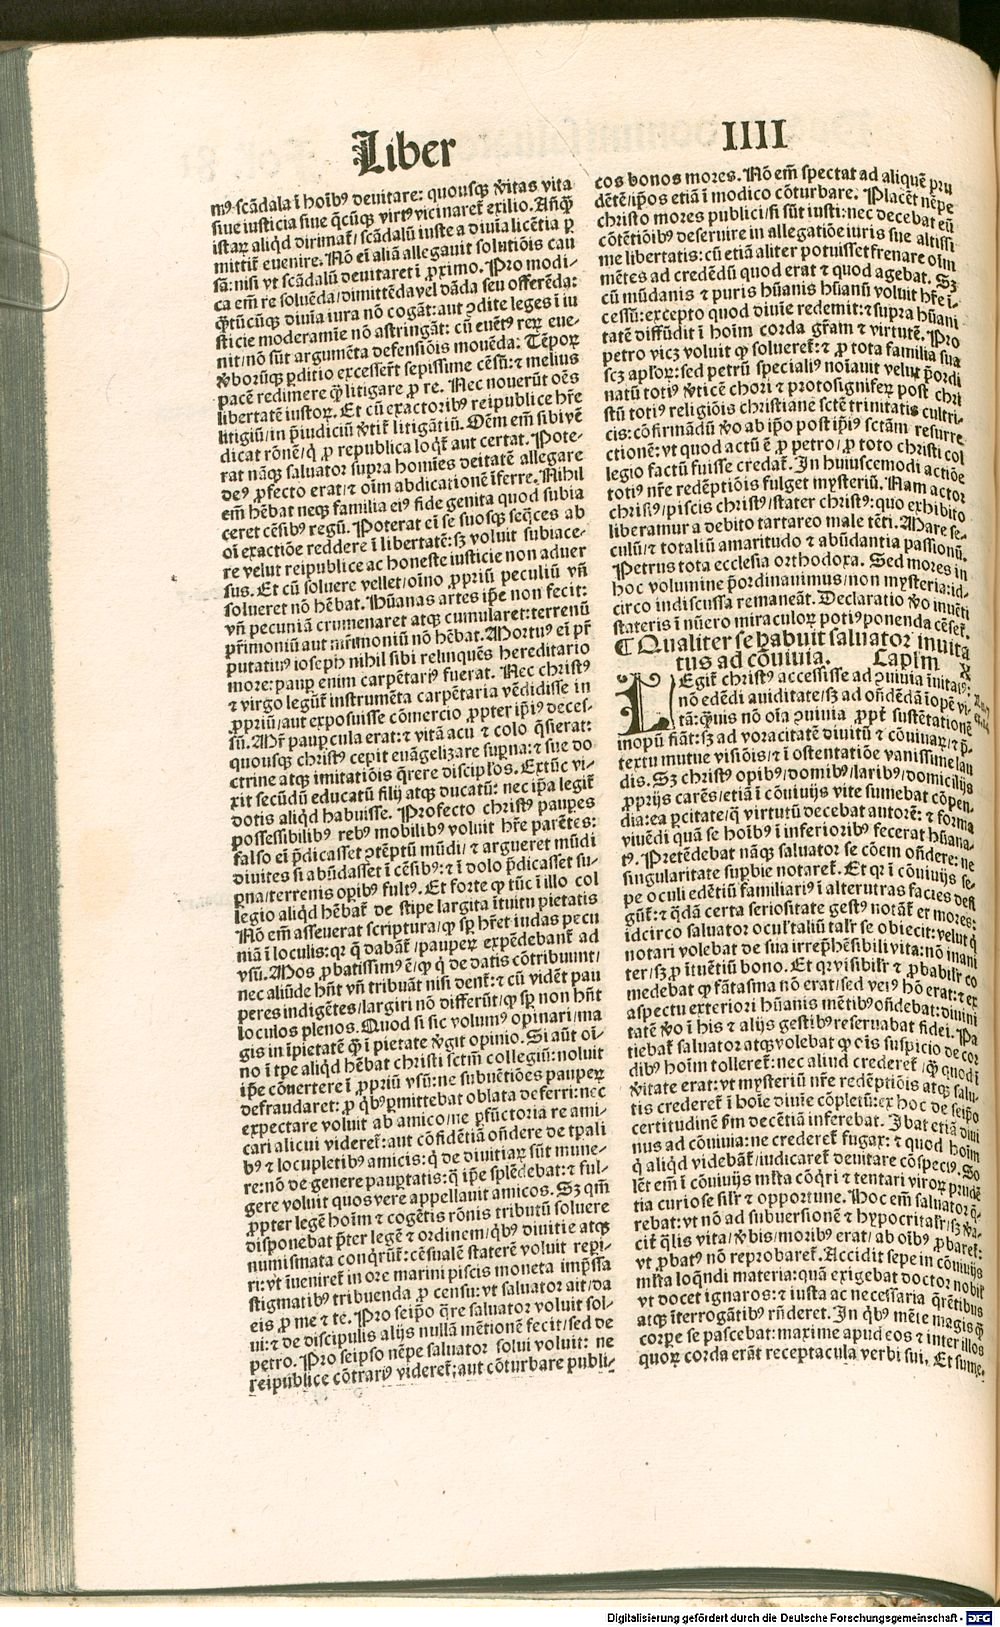 Liber IIII
mꝰ scãdala ĩ hoĩbꝰ deuitare: quousqꝫ v̾itas vita
siue iusticia siue q̃cũqꝫ virtꝰ vicinaret̃ exilio. Añq̃ꝫ
istaꝝ aliq̃d dirimat̃/ scãdalũ iuste a diuĩa licẽtia ꝑ
mittit̃ euenire. Nõ eĩ aliã allegauit solutiõis cau
sã: nisi vt scãdalũ deuitaret ĩ ꝓximo. Pro modi-
ca em̃ re soluẽda/dimittẽda vel dãda seu offerẽda:
q̃tũcũqꝫ diuĩa iura nõ cogãt: aut ꝯdite leges ĩ iu
sticie moderamĩe nõ astringãt: cũ euẽtꝰ reꝝ eue-
nit/ nõ sũt argumẽta defensiõis mouẽda: Tẽpoꝝ
v̾boꝝqꝫ ꝑditio excesser̃t sepissime cẽsũ: ⁊ melius
pacẽ redimere q̃ꝫ litigare ꝓ re. Nec nouerũt oẽs
libertatẽ iustoꝝ. Et cũ exactoribꝰ reipublice hr̃e
litigiũ/ in p̃iudiciũ v̾tit̃ litigãtiũ. Oẽm em̃ sibi vẽ
dicat rõnẽ/ q̃ ꝓ republica loq̃t̃ aut certat. Pote-
rat nãqꝫ saluator supra homĩes deitatẽ allegare
deꝰ ꝓfecto erat/ ⁊ oĩm abdicationẽ ĩferre. Nihil
em̃ hẽbat neqꝫ familia eiꝰ fide genita quod subia
ceret cẽsibꝰ regũ. Poterat eĩ se suosqꝫ seq̃ces ab
oĩ exactiõe reddere ĩ libertatẽ: sꝫ voluit subiace-
re velut reipublice ac honeste iusticie non aduer
sus. Et cũ soluere vellet/ oĩno ꝓpriũ peculiũ vñ
solueret nõ hẽbat. Hũanas artes ip̃e non fecit:
vñ pecuniã crumenaret atqꝫ cumularet: terrenũ
pr̃imoniũ aut mr̃imoniũ nõ hẽbat. Mortuꝰ eĩ pr̃
putatiuꝰ ioseph nihil sibi relinquẽs hereditario
more: pauꝑ enim carpẽtariꝰ fuerat. Nec christꝰ
⁊ virgo legũt̃ instrumẽta carpẽtaria vẽdidisse in
ꝓpriũ/ aut exposuisse cõmercio ꝓpter ip̃iꝰ deces-
sũ. Mr̃ pauꝑcula erat: ⁊ vitã acu ⁊ colo q̃sierat:
quousqꝫ christꝰ cepit euãgelizare suꝑna: ⁊ sue do
ctrine atqꝫ imitatiõis q̃rere discip̃los. Extũc vi-
xit secũdũ educatũ filij atqꝫ ducatũ: nec ip̃a legit̃
dotis aliq̃d habuisse. Profecto christꝰ pauꝑes
possessibilibꝰ rebꝰ mobilibꝰ voluit hr̃e parẽtes:
falso eĩ p̃dicasset ꝯtẽptũ mũdi/ ⁊ argueret mũdi
diuites si abũdasset ĩ cẽsibꝰ: ⁊ ĩ dolo p̃dicasset su-
ꝑna/ terrenis opibꝰ fultꝰ. Et forte ꝙ tũc ĩ illo col
legio aliq̃d hẽbat̃ de stipe largita ĩtuitu pietatis
Nõ em̃ asseuerat scriptura/ ꝙ sꝑ hr̃et iudas pecu
niã ĩ loculis: qꝛ q̃ dabãt̃/ pauꝑeꝝ expẽdebant̃ ad
vsũ. Mos ꝓbatissimꝰ ẽ/ ꝙ q̃ de datis cõtribuunt/
nec aliũde hñt vñ tribuãt nisi dent̃: ⁊ cũ vidẽt pau
peres indigẽtes/ largiri nõ differũt/ ꝙ sꝑ non hñt
loculos plenos. Quod si sic volumꝰ opinari/ ma
gis in ĩpietatẽ q̃ꝫ ĩ pietate v̾git opinio. Si aũt oĩ-
no ĩ tp̃e aliq̃d hẽbat christi sctm̃ collegiũ: noluit
ip̃e cõuertere ĩ ꝓpriũ vsũ: ne subuẽtiões pauꝑeꝝ
defraudaret: ꝓ q̃bꝰ ꝑmittebat oblata deferri: nec
expectare voluit ab amico/ ne ꝑfũctoria re ami-
cari alicui videret̃: aut cõfidẽtiã oñdere de tp̃ali
bꝰ ⁊ locupletibꝰ amicis: q̃ de diuitiaꝝ sũt mune-
re: nõ de genere pauꝑtatis: q̃ ip̃e splẽdebat: ⁊ ful-
gere voluit quos vere appellauit amicos. Sꝫ qm̃
ꝓpter legẽ hoĩm ⁊ cogẽtis rõnis tributũ soluere
disponebat p̃ter legẽ ⁊ ordinem/ q̃bꝰ diuitie atqꝫ
numismata conq̃rũt̃: cẽsualẽ staterẽ voluit reꝑi-
ri: vt ĩueniret̃ in ore marini piscis moneta imp̃ssa
stigmatibꝰ tribuenda ꝓ censu: vt saluator ait/ da
eis ꝓ me ⁊ te. Pro seip̃o q̃re saluator voluit sol-
ui: ⁊ de discipulis alijs nullã mẽtionẽ fecit/ sed de
petro. Pro seipso nẽpe saluator solui voluit: ne
reipublice cõtrariꝰ videret̃: aut cõturbare publi-
cos bonos mores. Nõ em̃ spectat ad aliquẽ pru
dẽtẽ/ ip̃os etiã ĩ modico cõturbare. Placẽt nẽpe
christo mores publici/ si sũt iusti: nec decebat eũ
cõtẽtiõibꝰ deseruire in allegatiõe iuris sue altissi
me libertatis: cũ etiã aliter potuisset frenare oĩm
mẽtes ad credẽdũ quod erat ⁊ quod agebat. Sꝫ
cũ mũdanis ⁊ puris hũanis hũanũ voluit hr̃e ĩ-
cessũ: excepto quod diuĩe redemit: ⁊ supra hũani
tatẽ diffũdit ĩ hoĩm corda gr̃am ⁊ virtutẽ. Pro
petro vicꝫ voluit ꝙ solueret̃: ⁊ ꝓ tota familia sua
scꝫ apl̃oꝝ: sed petrũ specialiꝰ noĩauit velut p̃ordi
natũ totiꝰ v̾ticẽ chori ⁊ protosigniferꝝ post chri
stũ totiꝰ religiõis christiane sctẽ trinitatis cultri-
cis: cõfirmãdũ v̾o ab ip̃o post ip̃iꝰ sctãm resurre
ctionẽ: vt quod actũ ẽ ꝓ petro/ ꝓ toto christi col
legio factũ fuisse credat̃. In huiuscemodi actiõe
totiꝰ nr̃e redẽptiõis fulget mysteriũ. Nam actor
christꝰ/ piscis christꝰ/ stater christꝰ: quo exhibito
liberamur a debito tartareo male tẽti. Mare se-
culũ/ ⁊ totaliũ amaritudo ⁊ abũdantia passionũ.
Petrus tota ecclesia orthodoxa. Sed mores in
hoc volumine p̃ordinauimus/ non mysteria: id-
circo indiscussa remaneãt. Declaratio v̾o inuẽti
stateris ĩ nũero miraculoꝝ potiꝰ ponenda cẽset̃.
¶ Qualiter se habuit saluator inuita
tus ad cõuiuia. Capl̃m X
LEgit̃ christꝰ accessisse ad ꝯuiuia ĩuitatꝰ:
nõ edẽdi auiditate/ sꝫ ad oñdẽdã ĩopẽ vi-
tã: q̃uis nõ oĩa ꝯuiuia ꝓpt̃ sustẽtationẽ
inopũ fiãt: sꝫ ad voracitatẽ diuitũ ⁊ cõuiuaꝝ/ ⁊ p̃-
textu mutue visiõis/ ⁊ ĩ ostentatiõe vanissime lau
dis. Sꝫ christꝰ opibꝰ/ domibꝰ/ laribꝰ/ domicilijs
ꝓprijs carẽs/ etiã ĩ cõuiuijs vite sumebat cõpen-
dia: ea ꝑcitate/ q̃ virtutũ decebat autorẽ: ⁊ forma
viuẽdi quã se hoĩbꝰ ĩ inferioribꝰ fecerat hũana-
tꝰ. Pretẽdebat nãqꝫ saluator se cõem oñdere: ne
singularitate suꝑbie notaret̃. Et qꝛ ĩ cõuiuijs se-
pe oculi edẽtiũ familiariꝰ ĩ alterutras facies defi
gũt̃: ⁊ q̃dã certa seriositate gestꝰ notãt̃ et mores:
idcirco saluator ocul̃ taliũ talr̃ se obiecit: velut q̃
notari volebat de sua irrep̃hẽsibili vita: nõ inani
ter/ sꝫ ꝓ ĩtuẽtiũ bono. Et qꝛ visibilr̃ ⁊ ꝓbabilr̃ co
medebat ꝙ fãtasma nõ erat/ sed veꝰ hõ erat: ⁊ ex
aspectu exteriori hũanis mẽtibꝰ oñdebat: diuini
tatẽ v̾o ĩ his ⁊ alijs gestibꝰ reseruabat fidei. Pa
tiebat̃ saluator atqꝫ volebat ꝙ eis suspicio de cor
dibꝰ hoĩm tolleret̃: nec aliud crederet̃/ q̃ꝫ quod ĩ
v̾itate erat: vt mysteriũ nr̃e redẽptiõis atqꝫ salu-
tis crederet̃ ĩ hoĩe diuĩe cõpletũ: ex hoc de seip̃o
certitudinẽ ꝑm decẽtiã inferebat. Ibat etiã diui
nus ad cõuiuia: ne crederet̃ fugax: ⁊ quod hoĩm
q̃ aliq̃d videbãt̃/ iudicaret̃ deuitare cõspectꝰ. So
lẽt em̃ ĩ cõuiuijs ml̃ta cõq̃ri ⁊ tentari viroꝝ prudẽ
tia curiose silr̃ ⁊ opportune. Hoc em̃ saluator q̃-
rebat: vt nõ ad subuersionẽ ⁊ hypocritalr̃/ sꝫ v̾a-
cit̃ q̃lis vita/ v̾bis/ moribꝰ erat/ ab oĩbꝰ ꝓbaret̃:
vt ꝓbatꝰ nõ reprobaret̃. Accidit sepe in cõuiuijs
ml̃ta loq̃ndi materia: quã exigebat doctor nobil̃
vt docet ignaros: ⁊ iusta ac necessaria q̃rẽtibus
atqꝫ ĩterrogãtibꝰ rñderet. In q̃bꝰ mẽte magis q̃ꝫ
corꝑe se pascebat: maxime apud eos ⁊ inter illos
quoꝝ corda erãt receptacula verbi sui. Et sume-
Digitalisierung gefördert durch die Deutsche Forschungsgemeinschaft - DFG